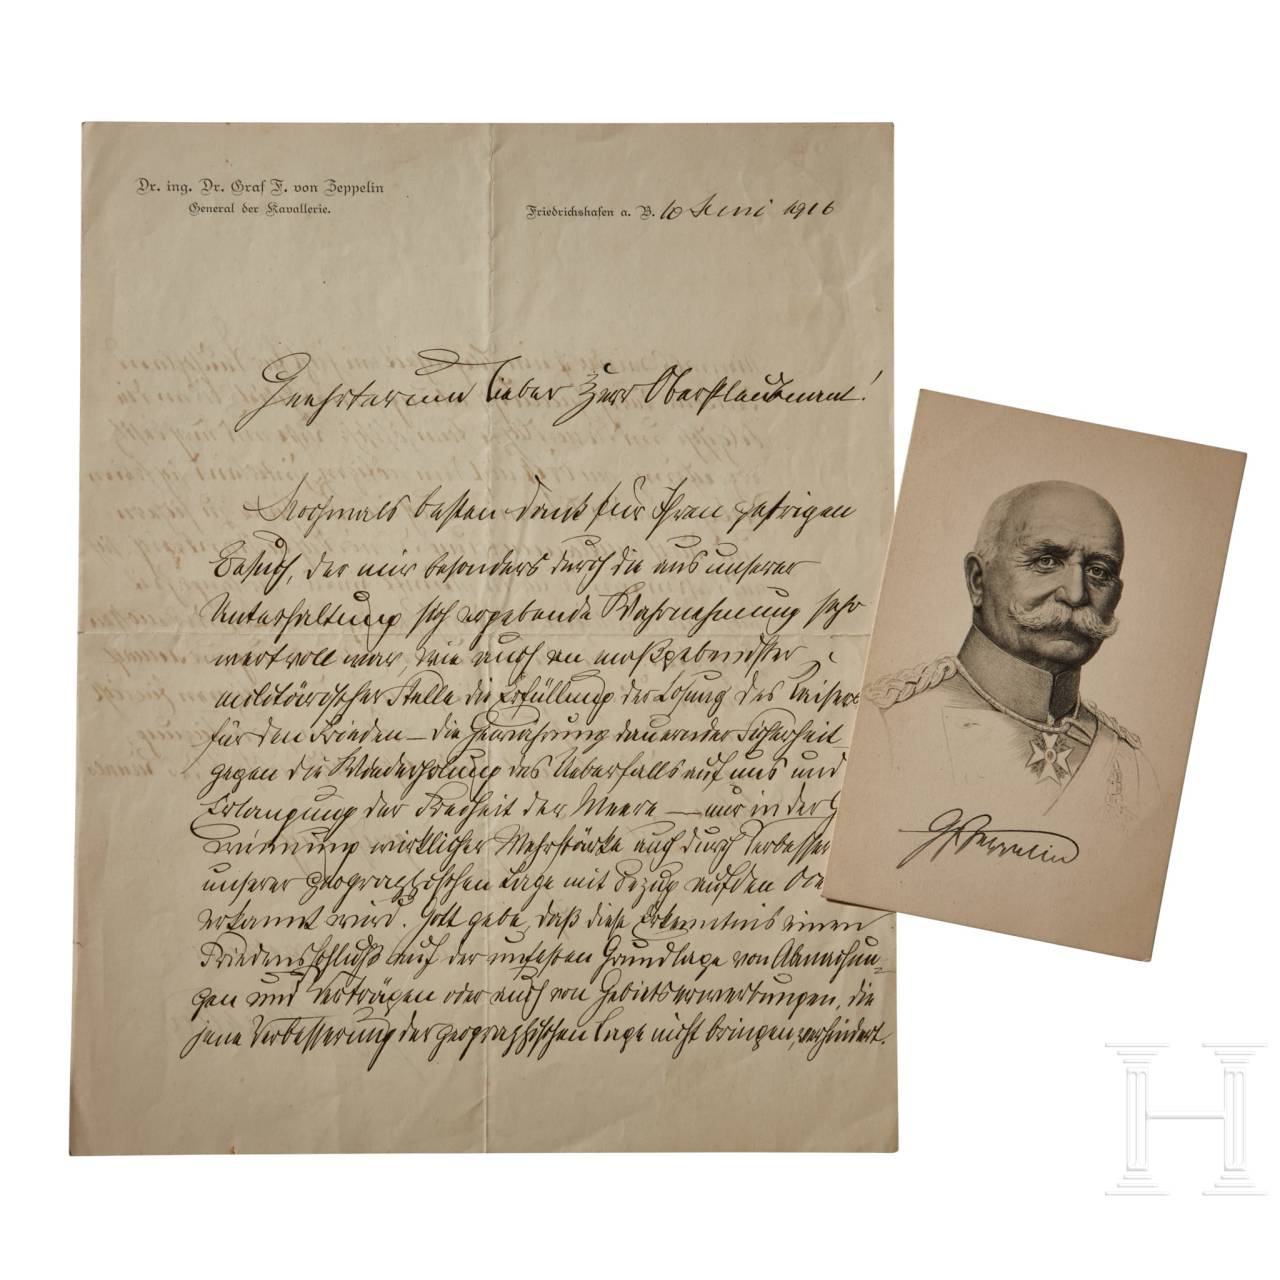 Dr. ing. Dr. Graf F. von Zeppelin
General der Kavallerie.
Friedrichshafen a. B. 10 Juni 1916
Geehrter und lieber Herr Oberstleutnant!
Nochmals besten Dank für Ihren gestrigen
Besuch, der mir besonders durch die aus unserer
Unterhaltung sich ergebende Wahrnehmung sehr
wertvoll war, wie auch an maßgebendster
militärischer Stelle die Erfüllung der Losung des Kaisers
für den Frieden – die Gewährung dauernder Sicherheit
gegen die Wiederholung des Ueberfalls auf uns und
Erlangung der Freiheit der Meere – nur in der G
winnung wirklicher Mehrstärke auch durch Verbesser
unserer geographischen Lage mit Bezug auf den
erkannt wird. Gott gebe, daß diese Erkenntnis einen
Friedensschluß auf der unfesten Grundlage von Abmachun-
gen und Verträgen oder auch von Gebietserwerbungen, die
jene Verbesserung der geographischen Lage nicht bringen, verhindert.
GfZeppelin
H